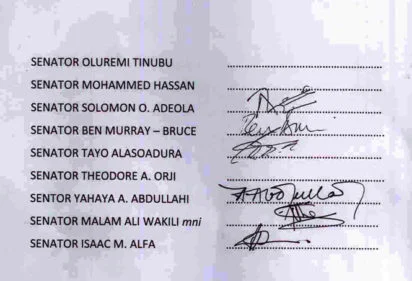 SENATOR OLUREMI TINUBU ........................................
SENATOR MOHAMMED HASSAN ........................................
SENATOR SOLOMON O. ADEOLA ........................................
SENATOR BEN MURRAY – BRUCE ........................................
SENATOR TAYO ALASOADURA ........................................
SENATOR THEODORE A. ORJI ........................................
SENTOR YAHAYA A. ABDULLAHI ........................................
SENATOR MALAM ALI WAKILI mni ........................................
SENATOR ISAAC M. ALFA ........................................